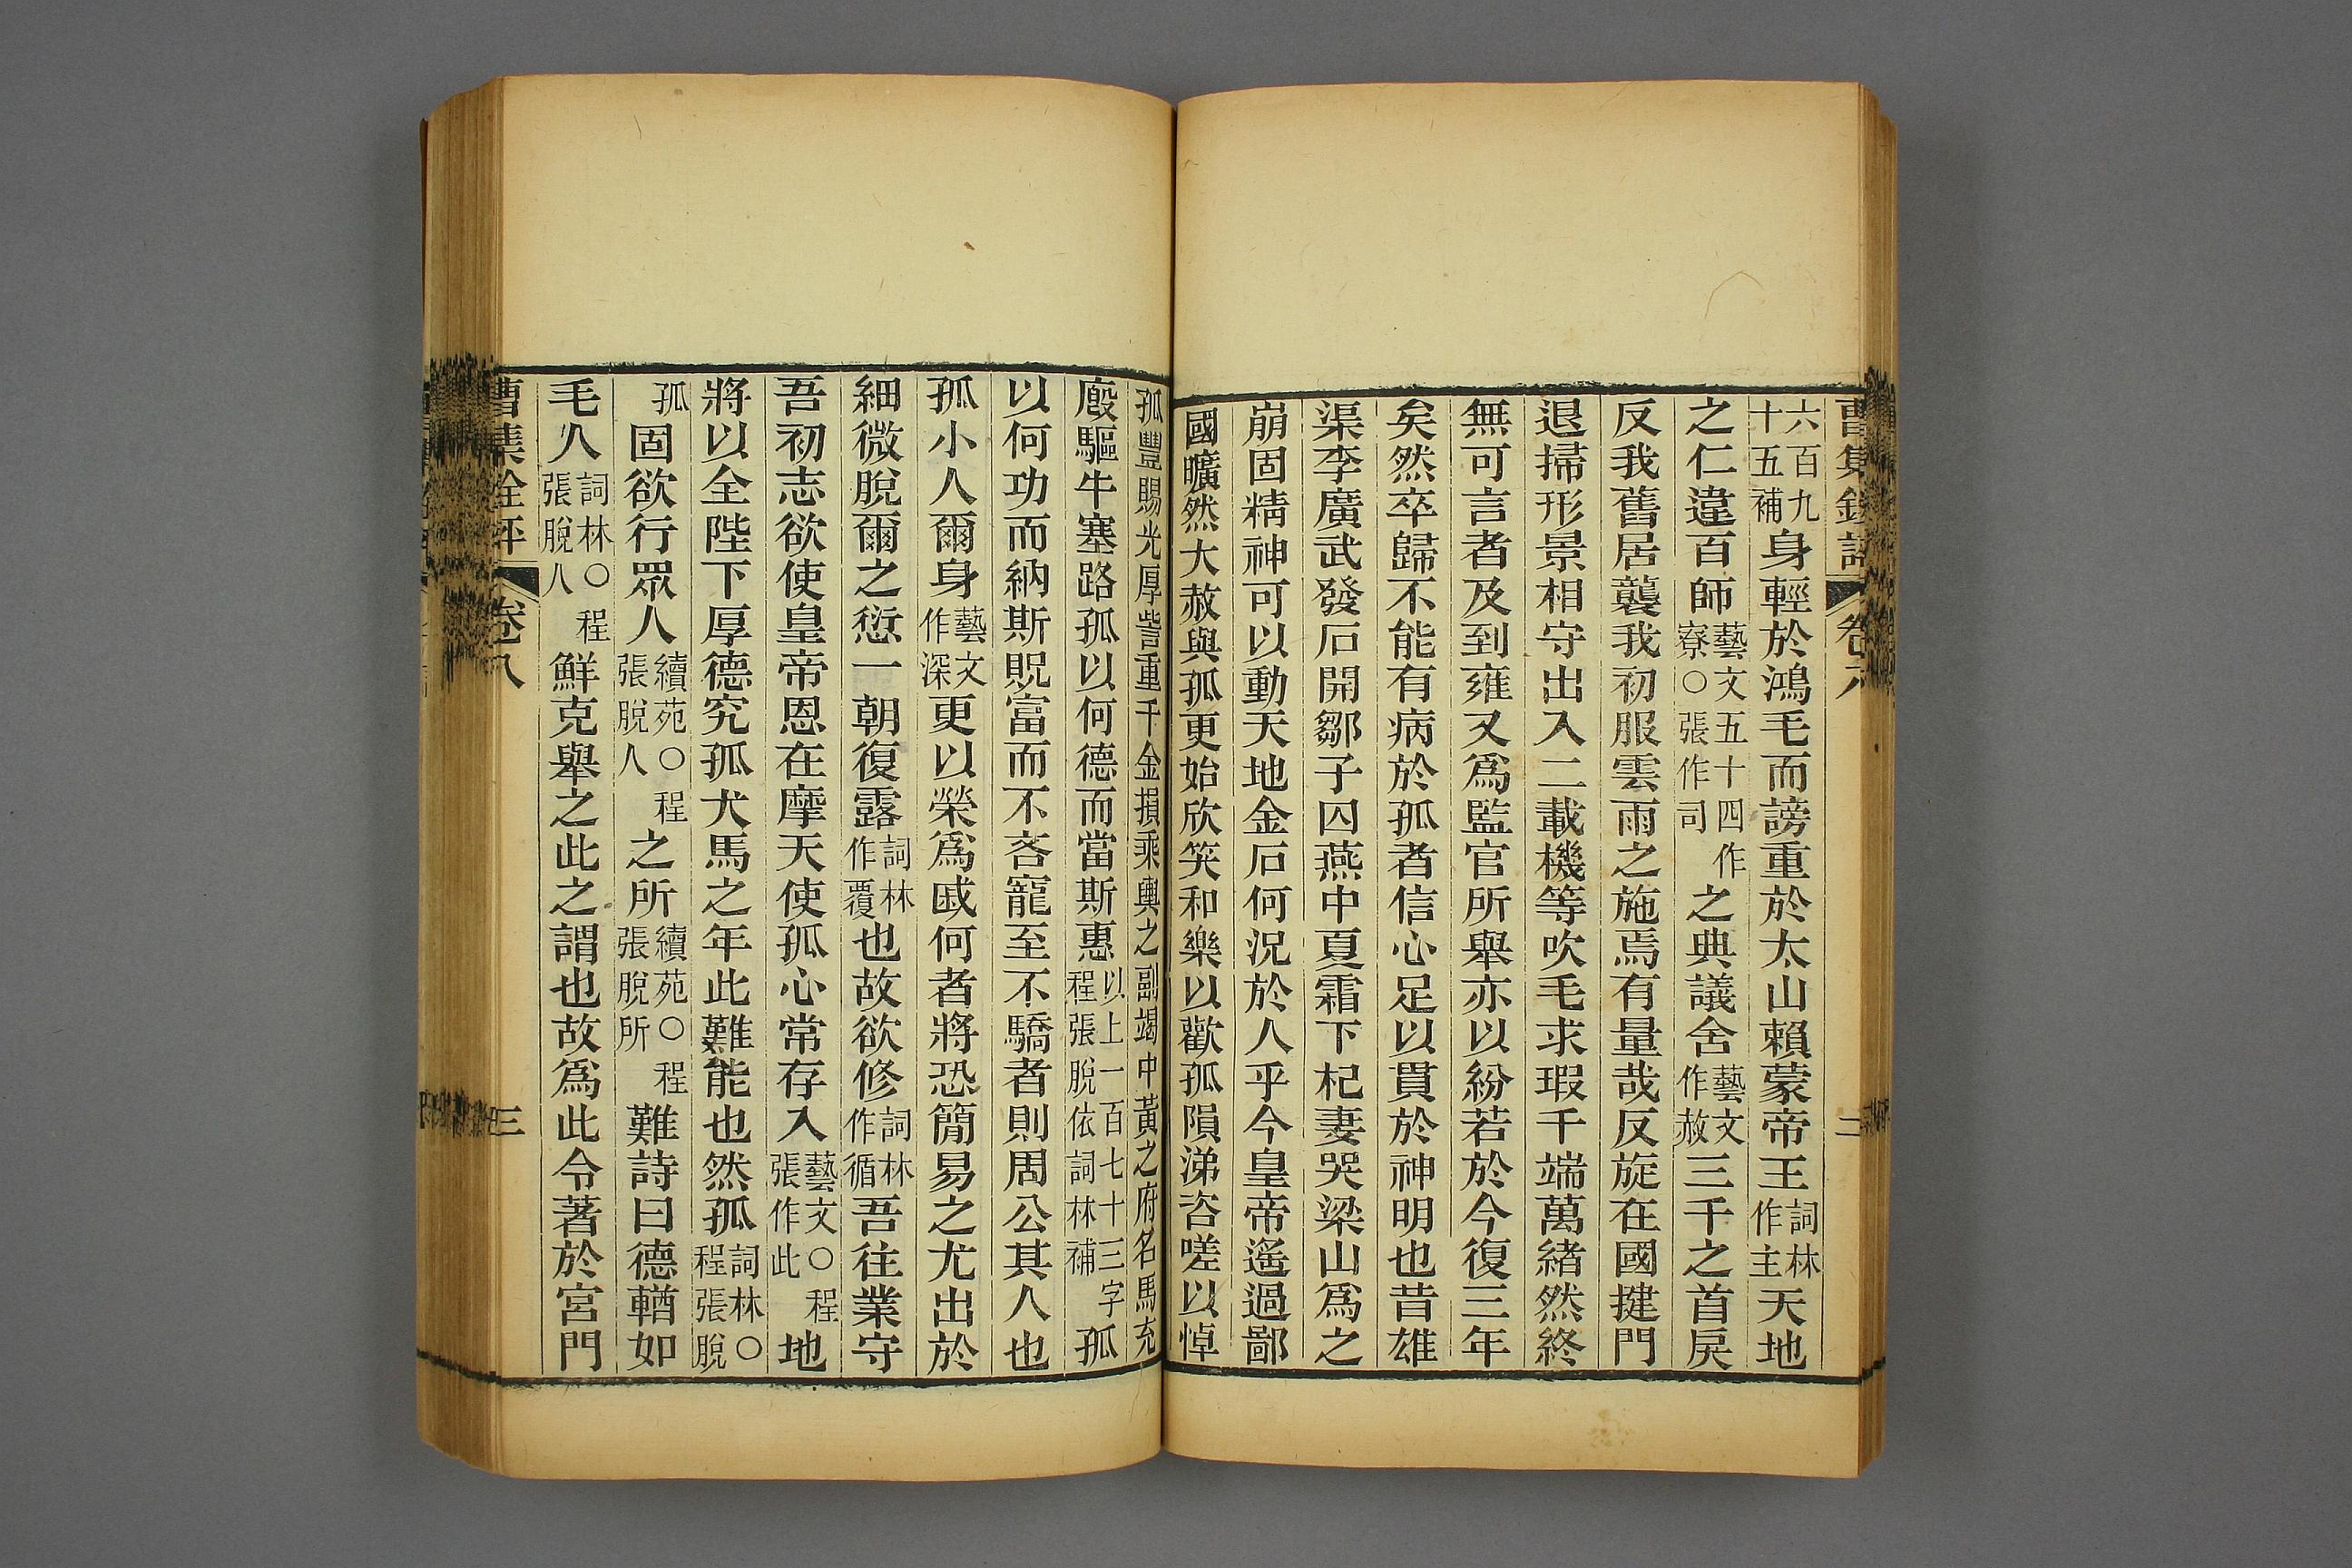 曹集銓評 卷八 二
六百九十五補身輕於鴻毛而謗重於太山賴蒙帝王詞林作主天地
之仁違百師藝文五十四作寮○張作司之典議舍藝文作赦三千之首戾
反我舊居襲我初服雲雨之施焉有量哉反旋在國揵門
退掃形景相守出入二載機等吹毛求瑕千端萬緒然終
無可言者及到雍又為監官所舉亦以紛若於今復三年
矣然卒歸不能有病於孤者信心足以貫於神明也昔雄
渠李廣武發石開鄒子囚燕中夏霜下杞妻哭梁山為之
崩固精神可以動天地金石何況於人乎今皇帝遙過鄙
國曠然大赦與孤更始欣笑和樂以歡孤隕涕咨嗟以悼
孤豐賜光厚訾重千金損乘輿之副竭中黃之府名馬充
廄驅牛塞路孤以何德而當斯惠以上一百七十三字程張脫依詞林補孤
以何功而納斯貺富而不吝寵至不驕者則周公其人也
孤小人爾身藝文作深更以榮為戚何者將恐簡易之尤出於
細微脫爾之愆一朝復露詞林作覆也故欲修詞林作循吾往業守
吾初志欲使皇帝恩在摩天使孤心常存入藝文○程張作此地
將以全陛下厚德究孤犬馬之年此難能也然孤詞林○程張脫
孤固欲行眾人續苑○程張脫人之所續苑○程張脫所難詩曰德輶如
毛人詞林○程張脫人鮮克舉之此之謂也故為此令著於宮門
曹集銓評 卷八 三